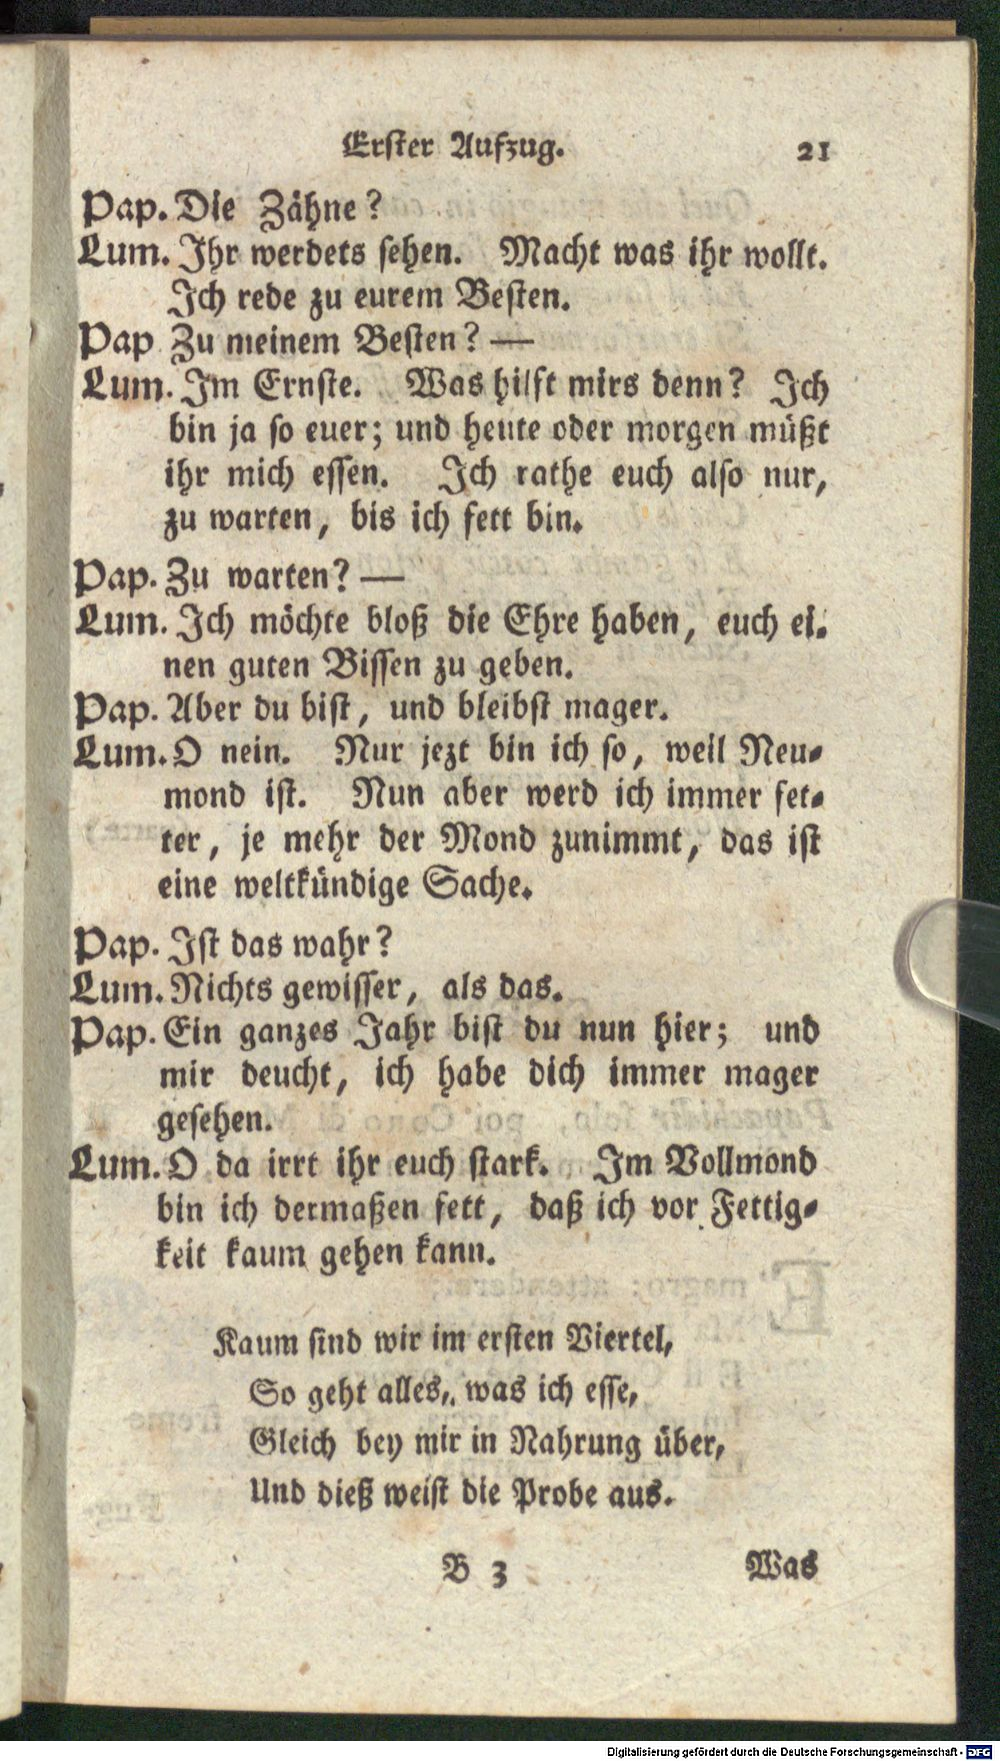 Erster Aufzug. 21
Pap. Die Zähne?
Lum. Ihr werdets sehen. Macht was ihr wollt.
Ich rede zu eurem Besten.
Pap Zu meinem Besten? —
Lum. Im Ernste. Was hilft mirs denn? Ich
bin ja so euer; und heute oder morgen müßt
ihr mich essen. Ich rathe euch also nur,
zu warten, bis ich fett bin.
Pap. Zu warten? —
Lum. Ich möchte bloß die Ehre haben, euch ei-
nen guten Bissen zu geben.
Pap. Aber du bist, und bleibst mager.
Lum. O nein. Nur jezt bin ich so, weil Neu-
mond ist. Nun aber werd ich immer fet-
ter, je mehr der Mond zunimmt, das ist
eine weltkündige Sache.
Pap. Ist das wahr?
Lum. Nichts gewisser, als das.
Pap. Ein ganzes Jahr bist du nun hier; und
mir deucht, ich habe dich immer mager
gesehen.
Lum. O da irrt ihr euch stark. Im Vollmond
bin ich dermaßen fett, daß ich vor Fettig-
keit kaum gehen kann.
Kaum sind wir im ersten Viertel,
So geht alles, was ich esse,
Gleich bey mir in Nahrung über,
Und dieß weist die Probe aus.
B 3 Was
Digitalisierung gefördert durch die Deutsche Forschungsgemeinschaft - DFG